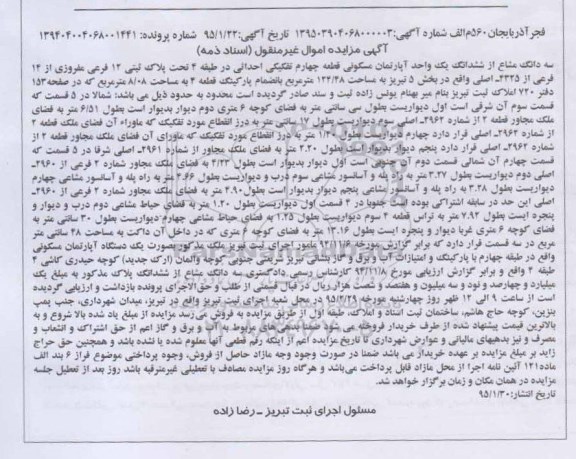 فجر آذربایجان ۵۶۰م‌الف شماره آگهی:۱۳۹۵۰۳۹۰۴۰۶۸۰۰۰۰۰۳ تاریخ آگهی:۹۵/۱/۲۲ شماره پرونده: ۱۳۹۴۰۴۰۰۴۰۶۸۰۰۱۴۴۱
آگهی مزایده اموال غیرمنقول (اسناد ذمه)
سه دانگ مشاع از ششدانگ یک واحد آپارتمان مسکونی قطعه چهارم تفکیکی احداثی در طبقه ۴ تحت پلاک ثبتی ۱۴ فرعی مفروزی از ۱۲
فرعی از ۳۳۲۵ـ اصلی واقع در بخش ۵ تبریز به مساحت ۱۲۲/۳۸ مترمربع بانضمام پارکینگ قطعه ۴ به مساحت ۸/۰۸ مترمربع که در صفحه ۱۵۳
دفتر ۷۲۰ املاک ثبت تبریز بنام میر بهنام یونس زاده ثبت و سند صادر گردیده است محدود به حدود ذیل می باشد: شمالا در ۵ قسمت که
قسمت سوم آن شرقی است اول دیواریست بطول سی سانتی متر به فضای کوچه ۶ متری دوم دیوار بدیوار است بطول ۶/۵۱ متر به فضای
ملک مجاور قطعه ۲ از شماره ۲۹۶۲ـ اصلی سوم دیواریست بطول سانتی متر به درز انقطاع مورد تفکیک که ماوراء آن فضای ملک قطعه ۲
از شماره ۲۹۶۲ـ اصلی قرار دارد چهارم دیواریست بطول ۱/۳۰ متر به درز انقطاع مورد تفکیک که ماورای آن فضای ملک مجاور قطعه ۲ از
شماره ۲۹۶۲ـ اصلی قرار دارد پنجم دیوار بدیوار است بطول ۴.۲۰ متر به فضای ملک مجاور از شماره ۲۹۶۱ـ اصلی شرقا در ۵ قسمت که
قسمت چهارم آن شمالی قسمت دوم آن جنوبی است اول دیوار بدیوار است بطول ۴/۲۳ متر به فضای ملک مجاور شماره ۲ فرعی از ۲۹۶۰ـ
اصلی دوم دیواریست بطول ۳.۲۷ متر به راه پله و آسانسور مشاعی سوم درب و دیواریست بطول ۲.۶۶ متر به راه پله و آسانسور مشاعی چهارم
دیواریست بطول ۳.۲۸ به راه پله و آسانسور مشاعی پنجم دیوار بدیوار است بطول ۴.۹۰ متر به فضای ملک مجاور شماره ۲ فرعی از ۲۹۶۰ـ
اصلی این حد در سابقه اشتراکی بوده است جنوبا در ۴ قسمت اول دیواریست بطول ۱.۲۰ متر به فضای حیاط مشاعی دوم درب و دیوار و
پنجره ایست بطول ۷.۹۲ متر به تراس قطعه ۴ سوم دیواریست بطول ۱.۲۵ به فضای حیاط مشاعی چهارم دیواریست بطول ۳۰ سانتی متر به
فضای کوچه ۶ متری غربا دیوار و پنجره ایست بطول ۱۳.۱۶ متر به فضای کوچه ۶ متری که در داخل آن داکت به مساحت ۴۸ سانتی متر
مربع در سه قسمت قرار دارد که برابر گزارش مورخه مامور اجرای ثبت تبریز ملک مذکور بصورت یک دستگاه آپارتمان مسکونی
واقع در طبقه چهارم با پارکینگ و امتیازات آب و برق و گاز بنشانی تبریز شریعتی جنوبی کوچه والمان (ارک جدید) کوچه حیدری کاشی ۴
طبقه ۴ واقع و برابر گزارش ارزیابی مورخ ۹۴/۱۱/۱۸ کارشناس رسمی دادگستری سه دانگ مشاع از ششدانگ پلاک مذکور به مبلغ یک
میلیارد و چهارصد و نود و سه میلیون و هفتصد و شصت هزار ریال در قبال قسمتی از طلب و حق الاجرای پرونده بازداشت و ارزیابی گردیده
است از ساعت ۹ الی ۱۲ ظهر روز چهارشنبه مورخه در محل شعبه اجرای ثبت تبریز واقع در تبریز، میدان شهرداری، جنب پمپ
بنزین، کوچه حاج هاشم، ساختمان ثبت اسناد و املاک، طبقه اول از طریق مزایده به فروش می‌رسد مزایده از مبلغ یاد شده بالا شروع و به
بالاترین قیمت پیشنهاد شده از طرف خریدار فروخته می مربوط به آب و برق و گاز اعم از حق اشتراک و انشعاب و
مصرف و نیز بدهیهای مالیاتی و عوارض شهرداری تا تاریخ مزایده اعم از اینکه رقم قطعی آنها معلوم شده یا نشده باشد و همچنین حق حراج
زاید بر مبلغ مزایده بر عهده خریدار می باشد ضمنا در صورت وجود وجه مازاد حاصل از فروش، وجوه پرداختی موضوع فراز ۶ بند الف
ماده ۱۲۱ آئین نامه اجرا از محل مازاد قابل پرداخت می‌باشد و هرگاه روز مزایده مصادف با تعطیلی غیرمترقبه باشد روز بعد از تعطیل جلسه
مزایده در همان مکان و زمان برگزار خواهد شد.
تاریخ انتشار: ۹۵/۱/۳۰
مسئول اجرای ثبت تبریز ـ رضا زاده